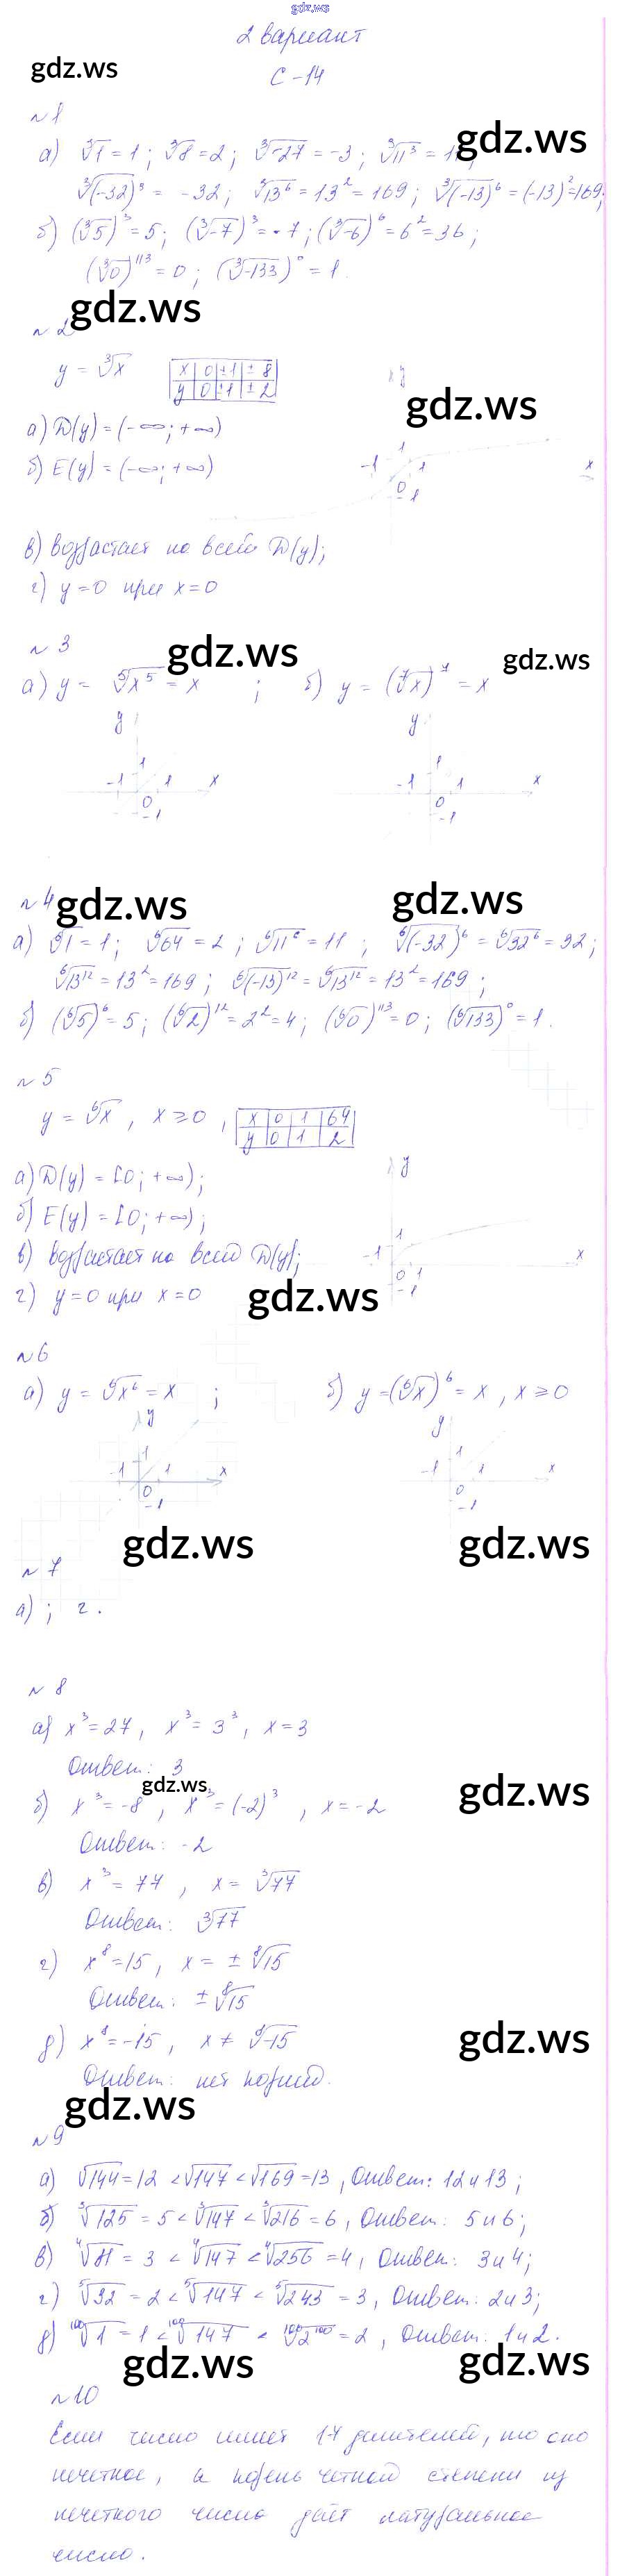 gdz.ws
2 вариант
gdz.ws
С-14
№1
а) ∛1=1; ∛8=2; ∛-27=-3; ∛11³=1
gdz.ws
∛(-32)³ = -32; ∛13⁶ = 13² = 169; ∛(-13)⁶ = (-13)²=169;
б) (∛5)³=5; (∛-7)³=-7; (∛-6)⁶=6²=36;
(∛0)¹¹³=0; (∛-133)⁰=1.
gdz.ws
№2
y = ∛x
x 0 ±1 ±8
y 0 ±1 ±2
y
gdz.ws
а) D(y)=(-∞;+∞)
б) E(y)=(-∞;+∞)
-1 1 1 x
0 -1
в) возрастает на всей D(y);
г) y=0 при x=0
№3
gdz.ws
gdz.ws
а) y = ⁵√x⁵ = x ; б) y = (⁷√x)⁷ = x
y y
-1 1 1 x -1 1 1 x
0 -1 0 -1
№4
gdz.ws
gdz.ws
а) ⁶√1=1; ⁶√64=2; ⁶√11⁶=11; ⁶√(-32)⁶=⁶√32⁶=32;
⁶√13¹²=13²=169; ⁶√(-13)¹²=⁶√13¹²=13²=169;
б) (⁶√5)⁶=5; (⁶√2)¹²=2²=4; (⁶√0)¹¹³=0; (⁶√133)⁰=1.
№5
y = ⁶√x, x≥0,
x 0 1 64
y 0 1 2
а) D(y)=[0;+∞);
y
б) E(y)=[0;+∞);
в) возрастает на всей D(y);
-1 1 x
0 1 -1
г) y=0 при x=0
gdz.ws
№6
а) y = ⁶√x⁶ = x ; б) y=(⁶√x)⁶ = x, x≥0
y y
-1 1 1 x -1 1 1 x
0 -1 0 -1
gdz.ws
gdz.ws
№7
а) ; г.
№8
а) x³=27, x³=3³, x=3
Ответ: 3
gdz.ws
gdz.ws
б) x³=-8, x³=(-2)³, x=-2
Ответ: -2
в) x³=77, x=∛77
Ответ: ∛77
г) x⁸=15, x=±⁸√15
Ответ: ±⁸√15
д) x⁸=-15, x≠⁸√-15
gdz.ws
Ответ: нет корней.
gdz.ws
№9
а) √144=12<√147<√169=13, Ответ: 12 и 13;
б) ∛125=5<∛147<∛216=6, Ответ: 5 и 6;
в) ⁴√81=3<⁴√147<⁴√256=4, Ответ: 3 и 4;
г) ⁵√32=2<⁵√147<⁵√243=3, Ответ: 2 и 3;
д) ¹⁰⁰√1=1<¹⁰⁰√147<¹⁰⁰√2¹⁰⁰=2, Ответ: 1 и 2.
gdz.ws
gdz.ws
№10
Если число имеет 17 делителей, то оно
нечетное, а корень четной степени из
нечетного числа дает натуральное
число.